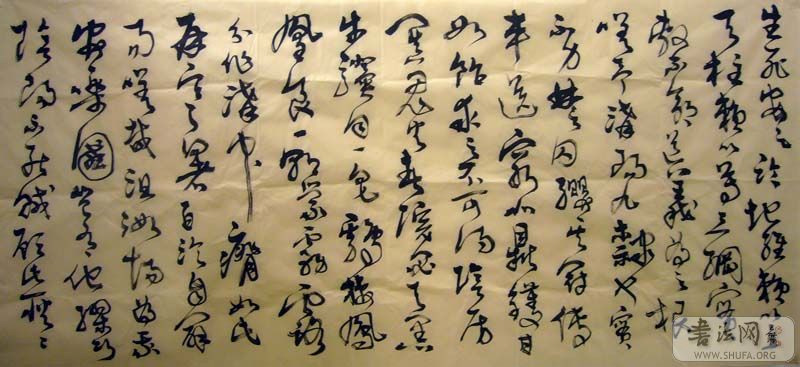 生死安足論地維賴以立
天柱賴以尊三綱實
道義為之根
嗟予遘陽九隸也實
不力楚囚纓其冠傳
車送窮北鼎鑊甘
如飴求之不可得陰房
闃鬼火春院閟天黑
牛驥同一皂鷄棲鳳
凰食一朝蒙霧露
分作溝中瘠如此
再寒暑百沴自辟
易嗟哉沮洳場為我
安樂國豈有他繆巧
陰陽不能賊顧此耿耿
書法网
WWW.SHUFA.ORG